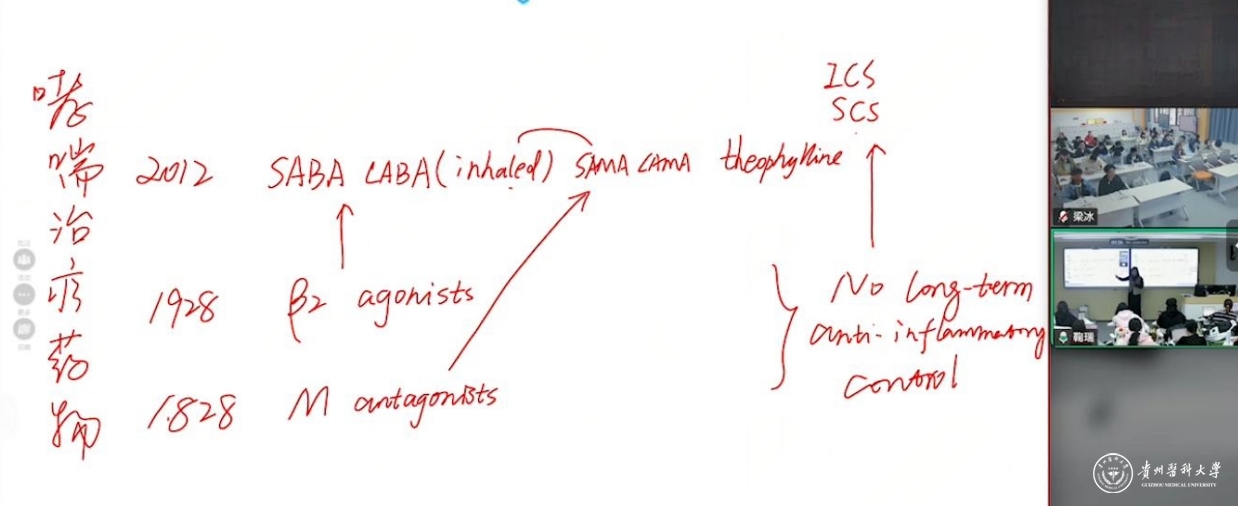 哮喘治疗药物
ICS
SCS
2012 SABA LABA (inhaled) SAMA LAMA theophylline
1928 β2 agonists
1828 M antagonists
No long-term
anti-inflammatory
control
梁冰
鞠瑞
貴州醫科大學
GUIZHOU MEDICAL UNIVERSITY